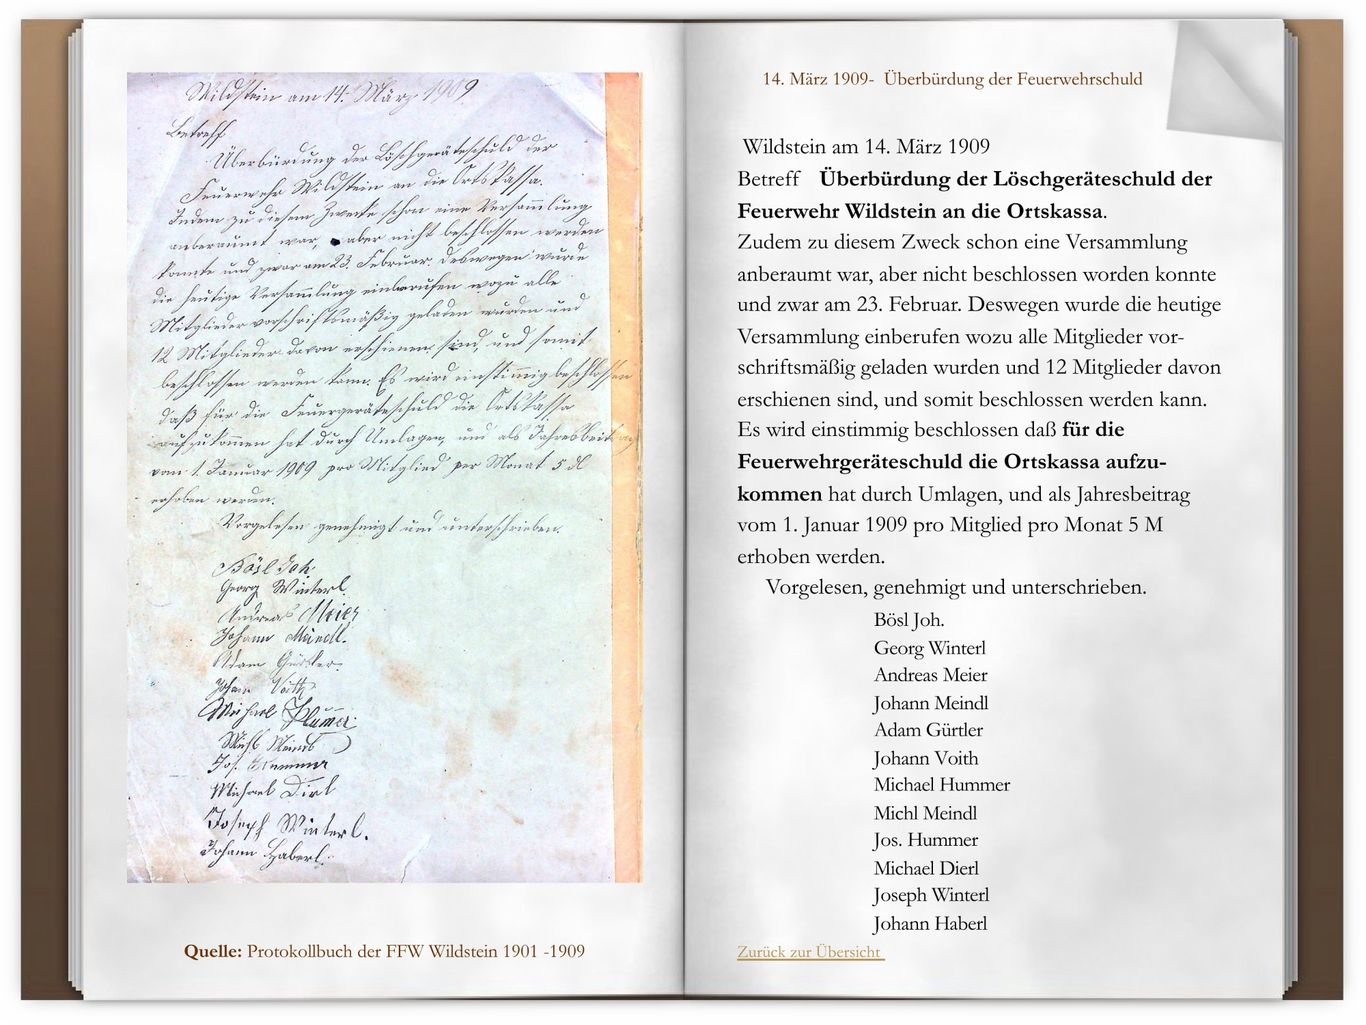 Wildstein am 14. März 1909
Betreff
Überbürdung der Löschgeräteschuld der
Feuerwehr Wildstein an die Ortskassa.
Indem zu diesem Zwecke schon eine Versammlung
anberaumt war, aber nicht beschlossen werden
konnte und zwar am 23. Februar. Deswegen wurde
die heutige Versammlung einberufen wozu alle
Mitglieder vorschriftsmäßig geladen wurden und
12 Mitglieder davon erschienen sind, und somit
beschlossen werden kann. Es wird einstimmig beschlossen
daß für die Feuergeräteschuld die Ortskassa
aufzukommen hat durch Umlagen, und als Jahresbeitrag
vom 1. Januar 1909 pro Mitglied per Monat 5 dl
erhoben werden.
Vorgelesen genehmigt und unterschrieben.
Bösl Joh.
Georg Winterl
Andreas Meier
Johann Meindl.
Adam Gürtler.
Johann Voith
Michael Hummer
Michl Meindl
Jos. Hummer
Michael Dirl
Joseph Winterl.
Johann Haberl.
Quelle: Protokollbuch der FFW Wildstein 1901 -1909
14. März 1909- Überbürdung der Feuerwehrschuld
Wildstein am 14. März 1909
Betreff Überbürdung der Löschgeräteschuld der
Feuerwehr Wildstein an die Ortskassa.
Zudem zu diesem Zweck schon eine Versammlung
anberaumt war, aber nicht beschlossen worden konnte
und zwar am 23. Februar. Deswegen wurde die heutige
Versammlung einberufen wozu alle Mitglieder vor-
schriftsmäßig geladen wurden und 12 Mitglieder davon
erschienen sind, und somit beschlossen werden kann.
Es wird einstimmig beschlossen daß für die
Feuerwehrgeräteschuld die Ortskassa aufzu-
kommen hat durch Umlagen, und als Jahresbeitrag
vom 1. Januar 1909 pro Mitglied pro Monat 5 M
erhoben werden.
Vorgelesen, genehmigt und unterschrieben.
Bösl Joh.
Georg Winterl
Andreas Meier
Johann Meindl
Adam Gürtler
Johann Voith
Michael Hummer
Michl Meindl
Jos. Hummer
Michael Dierl
Joseph Winterl
Johann Haberl
Zurück zur Übersicht